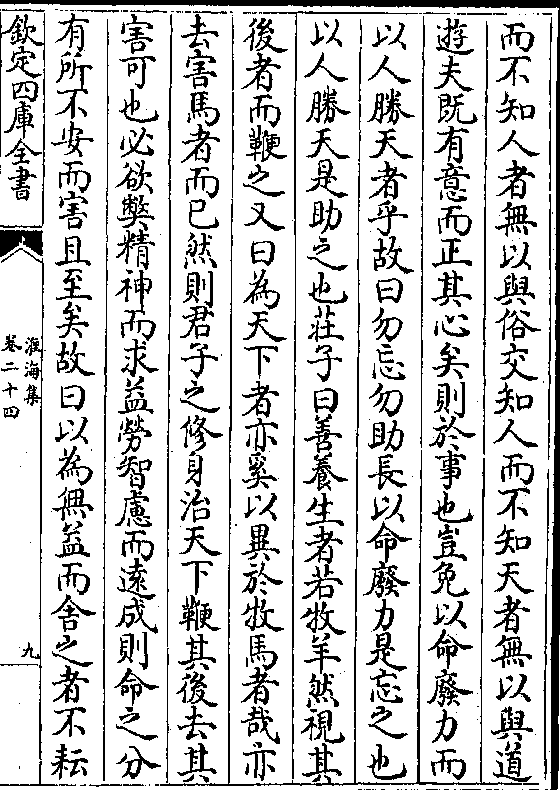 而不知人者無以與俗交知人而不知天者無以與道
遊夫既有意而正其心矣則於事也豈免以命廢力而
以人勝天者乎故曰勿忘勿助長以命廢力是忘之也
以人勝天是助之也莊子曰善養生者若牧羊然視其
後者而鞭之又曰為天下者亦奚以異於牧馬者哉亦
去害馬者而已然則君子之修身治天下鞭其後去其
害可也必欲弊精神而求益勞智慮而遠成則命之分
有所不安而害且至矣故曰以為無益而舍之者不耘
欽定四庫全書
淮海集
卷二十四
九